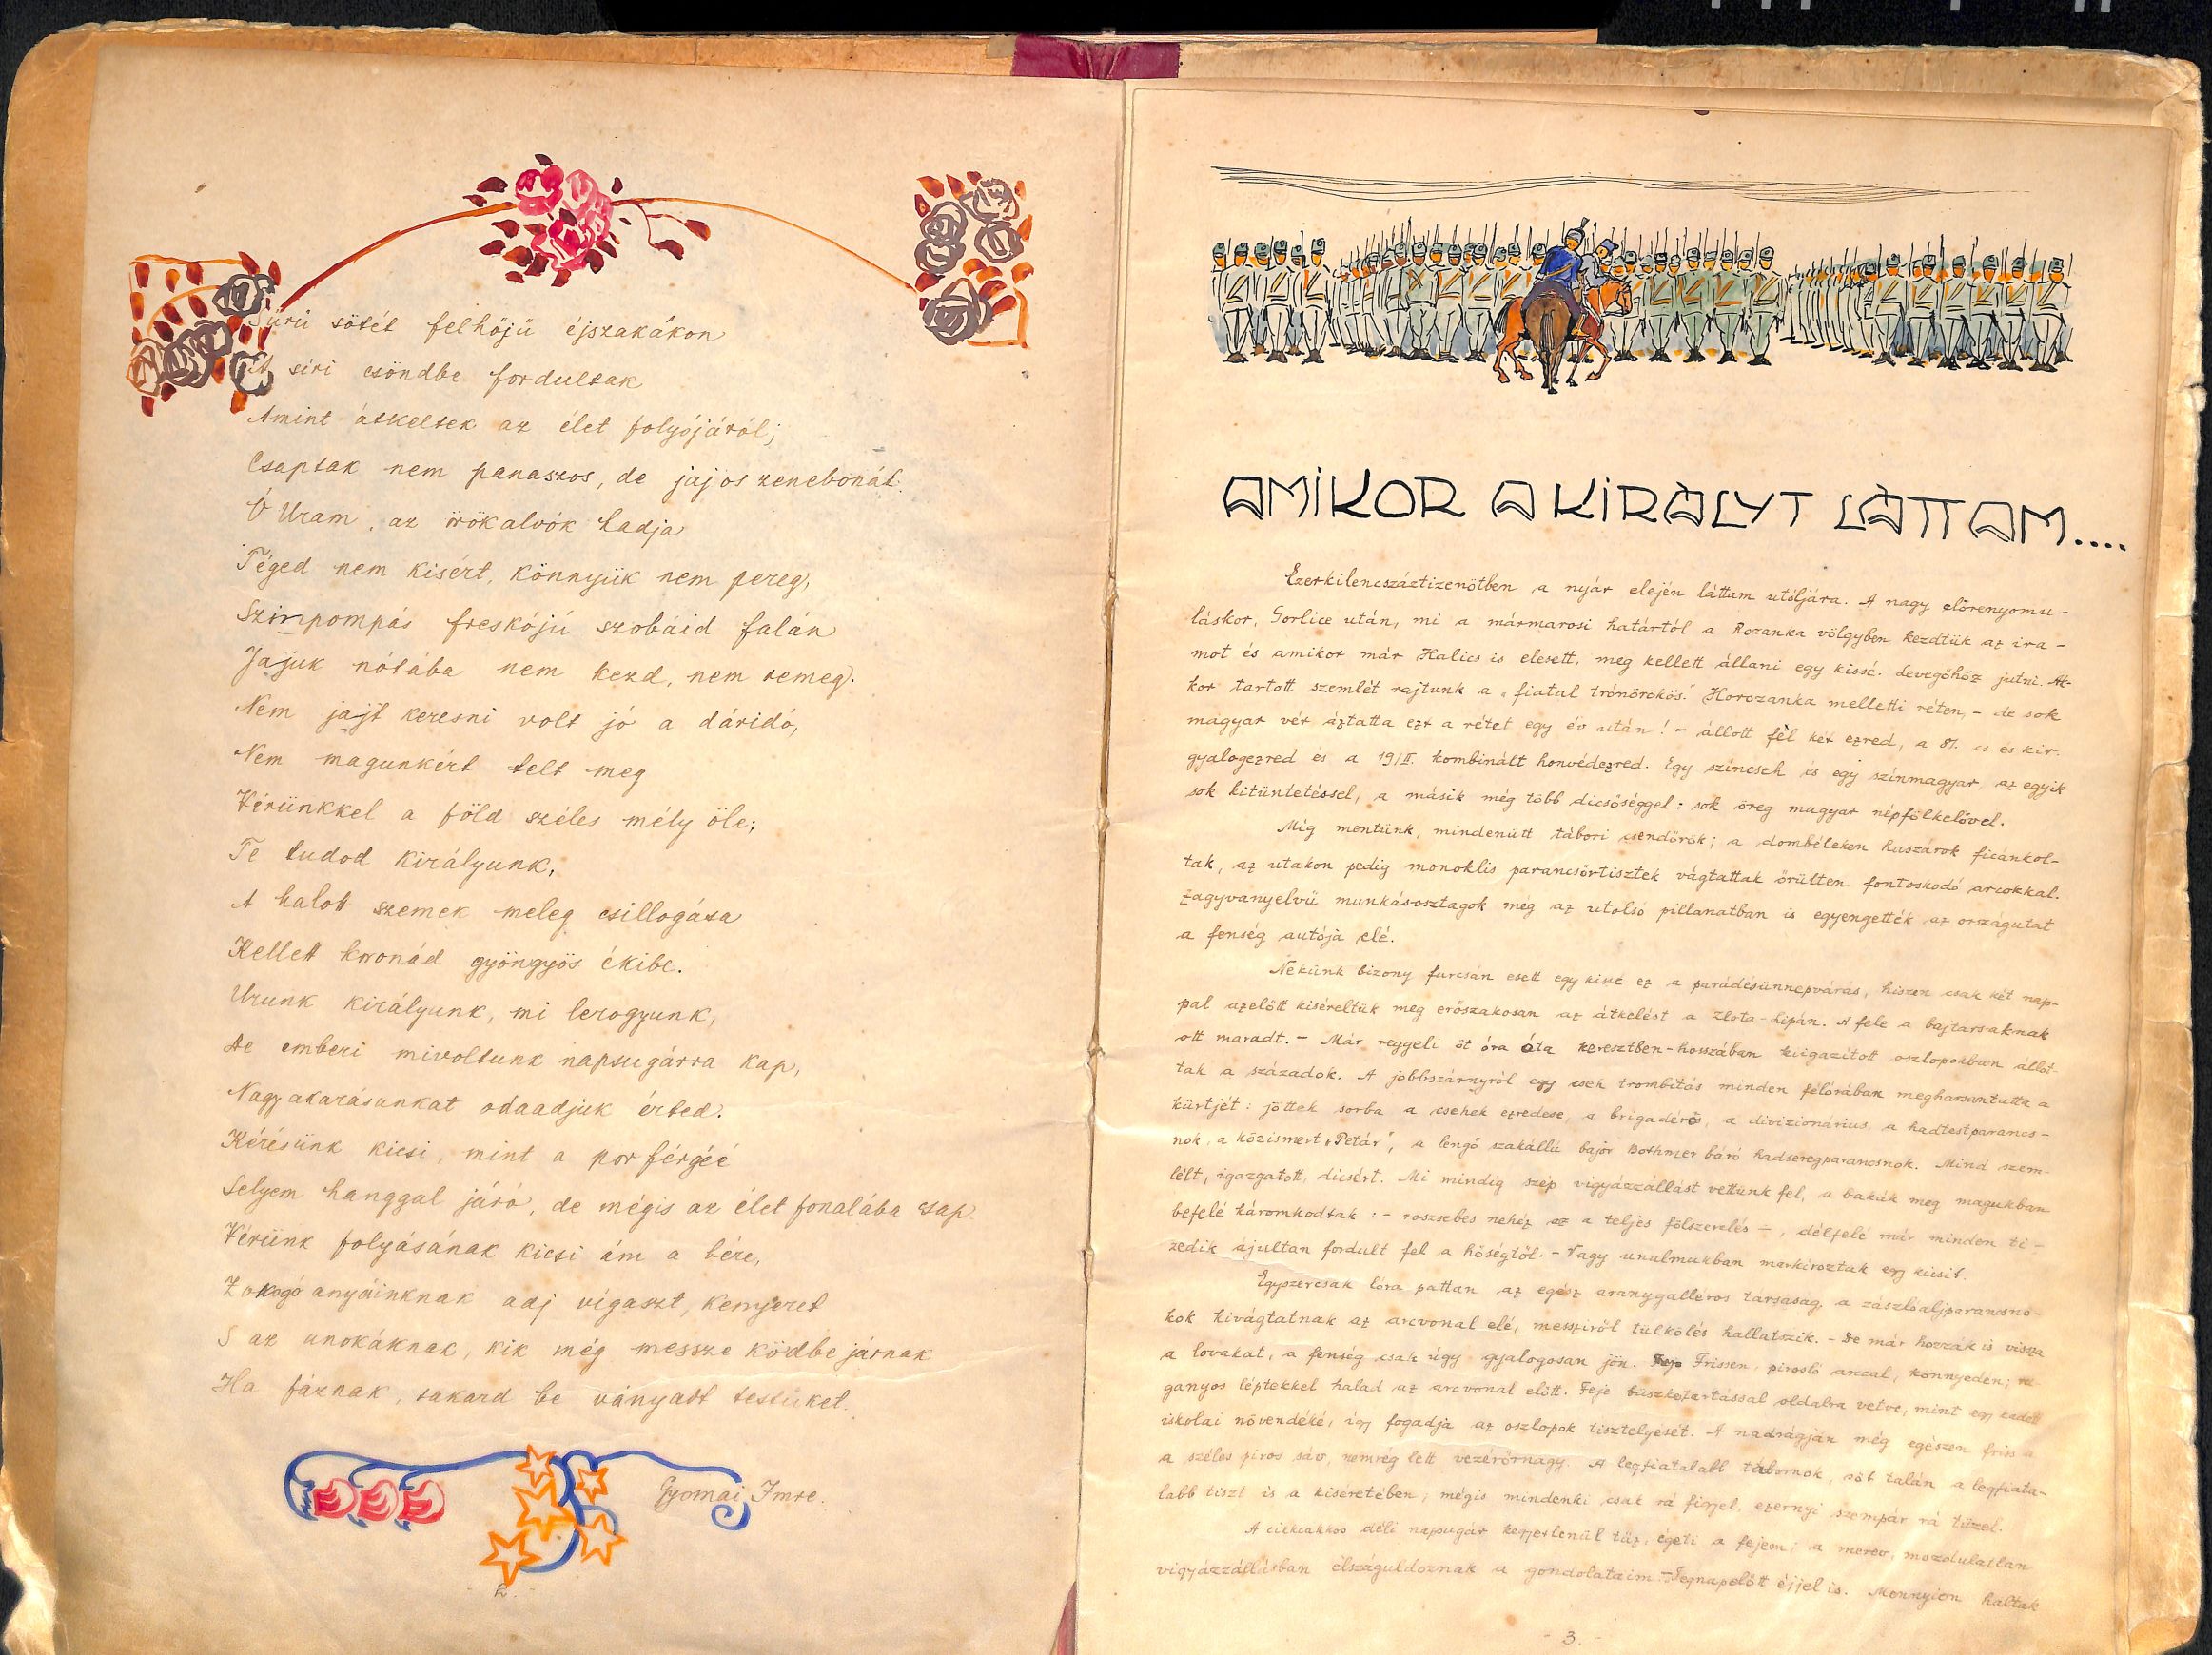 Sürü sötét felhőjü éjszakákon
És síri csöndbe fordultak
Amint átkeltek az élet folyójáról;
Csaptak nem panaszos, de jajos zenebonát.
Ó Uram, az örökalvók hadja
Téged nem kisért, könnyük nem pereg,
Szinpompás freskójú szobáid falán
Jajuk nótába nem kezd, nem remeg.
Nem jajt keresni volt jó a dáridó,
Nem magunkért telt meg
Vérünkkel a föld széles mély öle;
Te tudod királyunk,
A halott szemek meleg csillogása
Kellett koronád gyöngyös ékibe.
Urunk királyunk, mi lerogyunk,
De emberi mivoltunk napsugárra kap,
Nagyakarásunkat odaadjuk érted.
Kérésünk kicsi, mint a por férgéé
Selyem hanggal járó, de mégis az élet fonalába csap
Vérünk folyásának kicsi ám a bére,
Zokogó anyáinknak adj vigaszt, kenyeret
S az unokáknak, kik még messze ködbe járnak
Ha fáznak, takard be ványadt testüket.
Gyomai Imre.
- 2 -
AMIKOR A KIRÁLYT LÁTTAM....
Ezerkilencszáztizenötben a nyár elején láttam utóljára. A nagy előrenyomu-
láskor, Gorlice után, mi a mármarosi határtól a Rozanka völgyben kezdtük az ira-
mot és amikor már Halics is elesett, meg kellett állani egy kissé. Levegőhöz jutni. Ak-
kor tartott szemlét rajtunk a „fiatal trónörökös." Horozanka melletti réten, - de sok
magyar vér áztatta ezt a rétet egy év után! - állott fel két ezred, a 81. cs. és kir.
gyalogezred és a 19/II. kombinált honvédezred. Egy színcseh és egy színmagyar, az egyik
sok kitüntetéssel, a másik még több dicsőséggel: sok öreg magyar népfölkelővel.
Míg mentünk, mindenütt tábori csendőrök; a dombéleken huszárok ficánkol-
tak, az utakon pedig monoklis parancsőrtisztek vágtattak őrülten fontoskodó arcokkal.
zagyvanyelvü munkásosztagok még az utolsó pillanatban is egyengették az országutat
a fenség autója elé.
Nekünk bizony furcsán esett egy kissé ez a parádésünnepvárás, hiszen csak két nap-
pal azelőtt kiséreltük meg erőszakosan az átkelést a Zlota-Lipán. A fele a bajtársaknak
ott maradt. - Már reggeli öt óra óta keresztben-hosszában kiigazított oszlopokban állot-
tak a századok. A jobbszárnyról egy cseh trombitás minden félórában megharsantatta a
kürtjét: jöttek sorba a csehek ezredese, a brigadéros, a divizionárius, a hadtestparancs-
nok, a közismert „Petár", a lengő szakállú bajor Bothmer báró hadseregparancsnok. Mind szem-
lélt, igazgatott, dicsért. Mi mindig szép vigyázzállást vettünk fel, a bakák meg magukban
befelé káromkodtak: - rosszebes nehéz ez a teljes fölszerelés -, délfelé már minden ti-
zedik ájultan fordult fel a hőségtől. - Vagy unalmukban markíroztak egy kicsit.
Egyszercsak lóra pattan az egész aranygalléros társaság, a zászlóaljparancsno-
kok kivágtatnak az arcvonal elé, messziről tülkölés hallatszik. - De már hozzák is vissza
a lovakat, a fenség csak úgy gyalogosan jön. Frissen, pirosló arccal, könnyeden; ru-
ganyos léptekkel halad az arcvonal előtt. Feje büszketartással oldalra vetve, mint egy kadét
iskolai növendéké, így fogadja az oszlopok tisztelgését. A nadrágján még egészen friss a
a széles piros sáv, nemrég lett vezérőrnagy. A legfiatalabb tábornok, sőt talán a legfiata-
labb tiszt is a kiséretében; mégis mindenki csak rá figyel, ezernyi szempár rá tüzel.
A cikcakkos déli napsugár kegyetlenül tüz, égeti a fejem; a merev, mozdulatlan
vigyázzállásban elszáguldoznak a gondolataim. - Tegnapelőtt éjjel is. Mennyien haltak
- 3. -